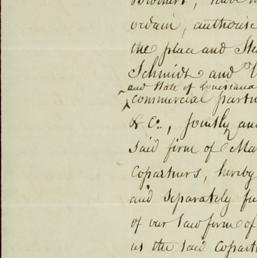 ordain, authorise
the place and Ste
Schmidt and
and State of Louisiana
commercial partn
& Co., jointly and
said firm of Ma
copartners, hereby
and separately fu
of our said firm of
us the said copart